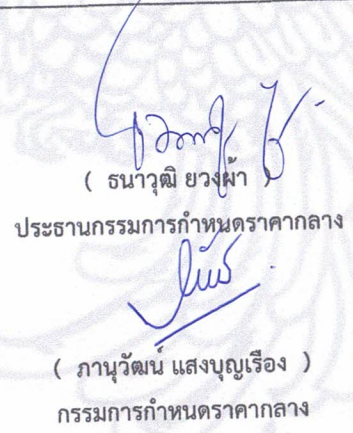 ( ธนาวุฒิ ยวงผ้า )
ประธานกรรมการกำหนดราคากลาง
( ภานุวัฒน์ แสงบุญเรือง )
กรรมการกำหนดราคากลาง